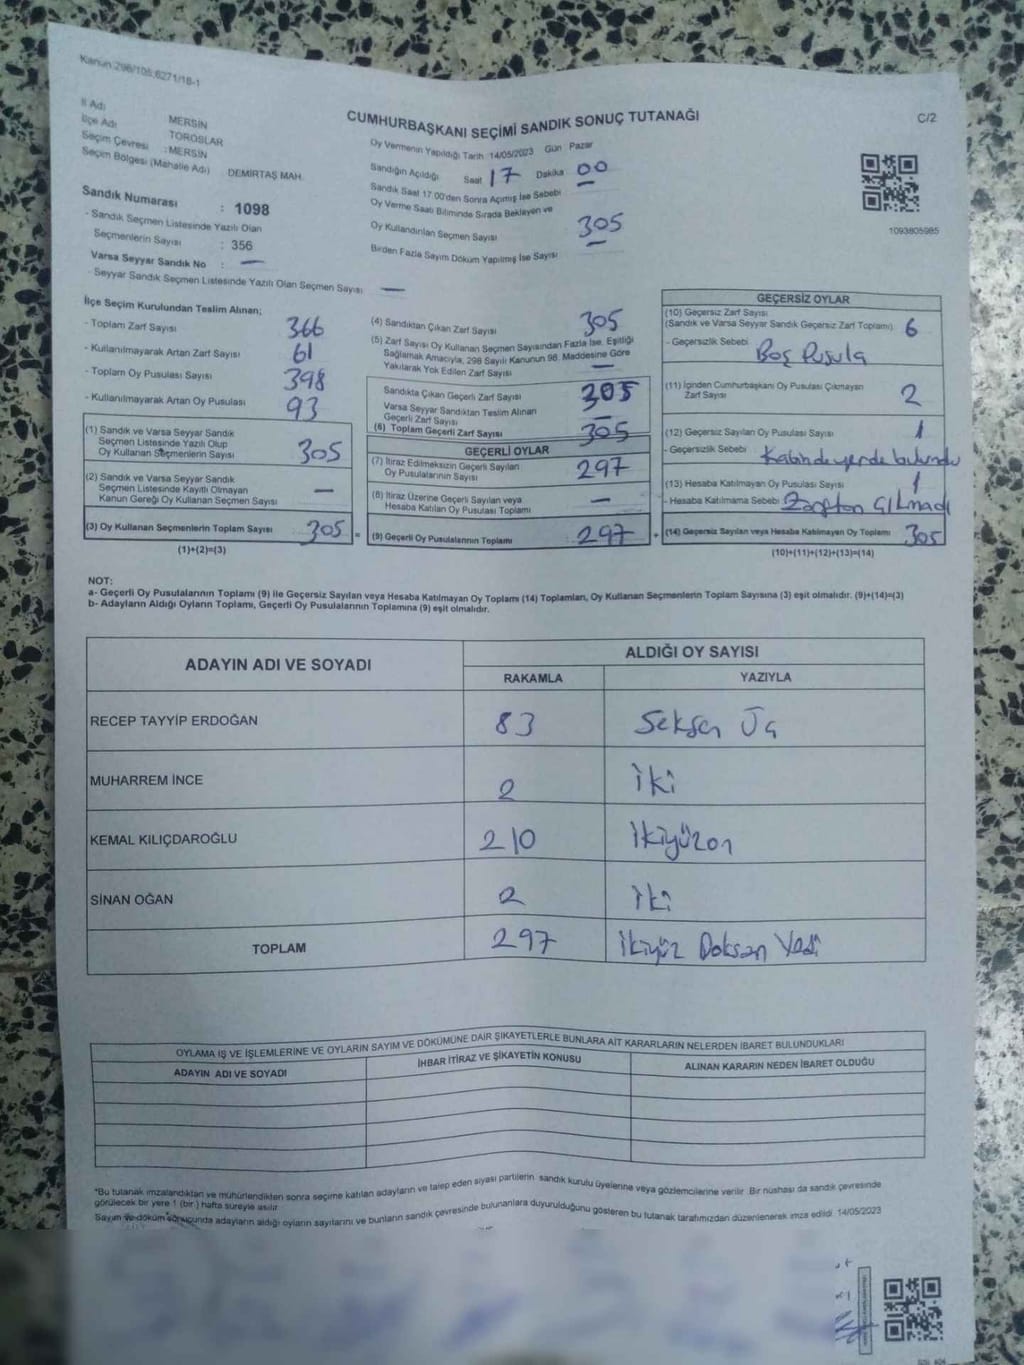 Kanun 298/105,6271/18-1
CUMHURBAŞKANI SEÇİMİ SANDIK SONUÇ TUTANAĞI
C/2
İl Adı MERSİN
İlçe Adı TOROSLAR
Seçim Çevresi : MERSİN
Seçim Bölgesi (Mahalle Adı) DEMİRTAŞ MAH.
Sandık Numarası : 1098
- Sandık Seçmen Listesinde Yazılı Olan
Seçmenlerin Sayısı : 356
Varsa Seyyar Sandık No : —
- Seyyar Sandık Seçmen Listesinde Yazılı Olan Seçmen Sayısı —
Oy Vermenin Yapıldığı Tarih 14/05/2023 Gün Pazar
Sandığın Açıldığı Saat 17 Dakika 00
Sandık Saat 17.00'den Sonra Açımış İse Sebebi —
Oy Verme Saati Bitiminde Sırada Bekleyen ve
Oy Kullandırılan Seçmen Sayısı 305
Birden Fazla Sayım Döküm Yapılmış İse Sayısı —
1093805985
İlçe Seçim Kurulundan Teslim Alınan;
- Toplam Zarf Sayısı 366
- Kullanılmayarak Artan Zarf Sayısı 61
- Toplam Oy Pusulası Sayısı 398
- Kullanılmayarak Artan Oy Pusulası 93
(1) Sandık ve Varsa Seyyar Sandık
Seçmen Listesinde Yazılı Olup
Oy Kullanan Seçmenlerin Sayısı 305
(2) Sandık ve Varsa Seyyar Sandık
Seçmen Listesinde Kayıtlı Olmayan
Kanun Gereği Oy Kullanan Seçmen Sayısı —
(3) Oy Kullanan Seçmenlerin Toplam Sayısı : 305 =
(1)+(2)=(3)
(4) Sandıktan Çıkan Zarf Sayısı 305
(5) Zarf Sayısı Oy Kullanan Seçmen Sayısından Fazla İse, Eşitliği
Sağlamak Amacıyla, 298 Sayılı Kanunun 98. Maddesine Göre
Yakılarak Yok Edilen Zarf Sayısı —
Sandıkta Çıkan Geçerli Zarf Sayısı 305
Varsa Seyyar Sandıktan Teslim Alınan
Geçerli Zarf Sayısı —
(6) Toplam Geçerli Zarf Sayısı 305
GEÇERLİ OYLAR
(7) İtiraz Edilmeksizin Geçerli Sayılan
Oy Pusulalarının Sayısı 297
(8) İtiraz Üzerine Geçerli Sayılan veya
Hesaba Katılan Oy Pusulası Toplamı —
(9) Geçerli Oy Pusulalarının Toplamı : 297 +
GEÇERSİZ OYLAR
(10) Geçersiz Zarf Sayısı
(Sandık ve Varsa Seyyar Sandık Geçersiz Zarf Toplamı) 6
- Geçersizlik Sebebi Boş Pusula
(11) İçinden Cumhurbaşkanı Oy Pusulası Çıkmayan
Zarf Sayısı 2
(12) Geçersiz Sayılan Oy Pusulası Sayısı 1
- Geçersizlik Sebebi Kabinde yerde bulundu
(13) Hesaba Katılmayan Oy Pusulası Sayısı 1
- Hesaba Katılmama Sebebi Zarftan Çıkmadı
(14) Geçersiz Sayılan veya Hesaba Katılmayan Oy Toplamı 305
(10)+(11)+(12)+(13)=(14)
NOT:
a- Geçerli Oy Pusulalarının Toplamı (9) ile Geçersiz Sayılan veya Hesaba Katılmayan Oy Toplamı (14) Toplamları, Oy Kullanan Seçmenlerin Toplam Sayısına (3) eşit olmalıdır. (9)+(14)=(3)
b- Adayların Aldığı Oyların Toplamı, Geçerli Oy Pusulalarının Toplamına (9) eşit olmalıdır.
ADAYIN ADI VE SOYADI ALDIĞI OY SAYISI
RAKAMLA YAZIYLA
RECEP TAYYİP ERDOĞAN 83 Seksen Üç
MUHARREM İNCE 2 İki
KEMAL KILIÇDAROĞLU 210 İkiyüzon
SİNAN OĞAN 2 İki
TOPLAM 297 İkiyüz Doksan Yedi
OYLAMA İŞ VE İŞLEMLERİNE VE OYLARIN SAYIM VE DÖKÜMÜNE DAİR ŞİKAYETLERLE BUNLARA AİT KARARLARIN NELERDEN İBARET BULUNDUKLARI
ADAYIN ADI VE SOYADI İHBAR İTİRAZ VE ŞİKAYETİN KONUSU ALINAN KARARIN NEDEN İBARET OLDUĞU
*Bu tutanak imzalandıktan ve mühürlendikten sonra seçime katılan adayların ve talep eden siyasi partilerin sandık kurulu üyelerine veya gözlemcilerine verilir. Bir nüshası da sandık çevresinde
görülecek bir yere 1 (bir) hafta süreyle asılır.
Sayım ve döküm sonucunda adayların aldığı oyların sayılarını ve bunların sandık çevresinde bulunanlara duyurulduğunu gösteren bu tutanak tarafımızdan düzenlenerek imza edildi. 14/05/2023